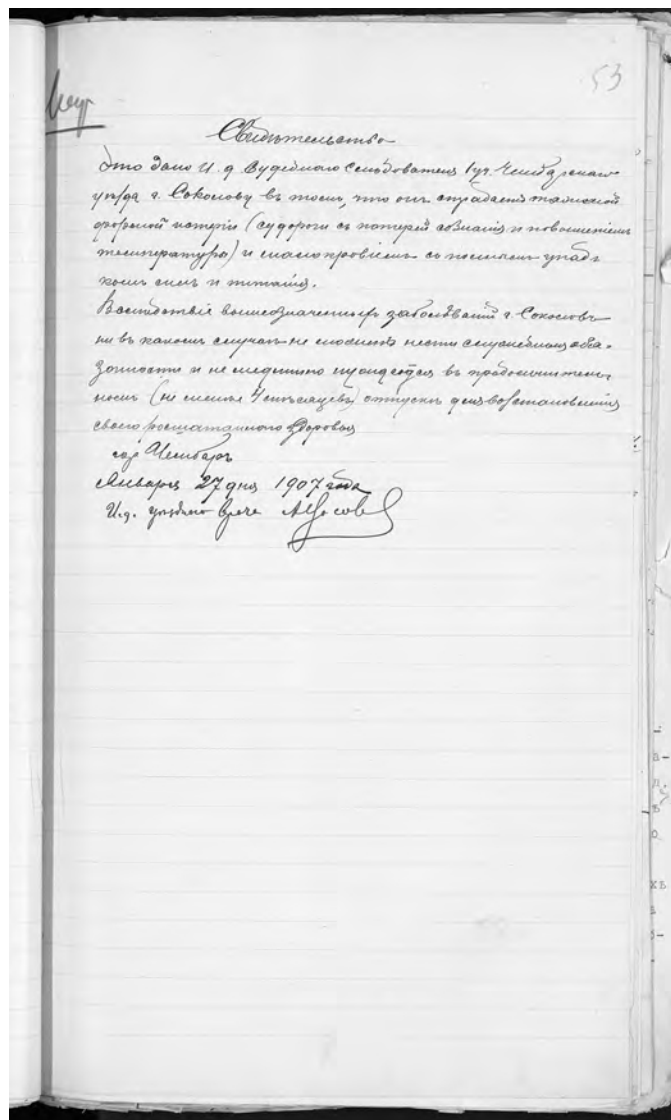 53
Свидѣтельство
Дано И. д. Судебнаго Слѣдователя 1 уч. Чембарскаго
уѣзда г. Соколову въ томъ, что онъ страдаетъ тяжелой
формой истеріи (судороги съ потерей сознанія и повышеніемъ
температуры) и малокровіемъ съ полнымъ упад-
комъ силъ и питанія.
Вслѣдствіе вышеозначенныхъ заболѣваній г. Соколовъ
ни въ какомъ случаѣ не можетъ нести служебныхъ обя-
занности и не медленно нуждается въ продолжитель-
номъ (не менѣе 4 мѣсяцевъ) отпускѣ для возстановленія
своего расшатаннаго здоровья
гор Чембаръ
Января 27 дня 1907 года
И. д. уѣзднаго врача